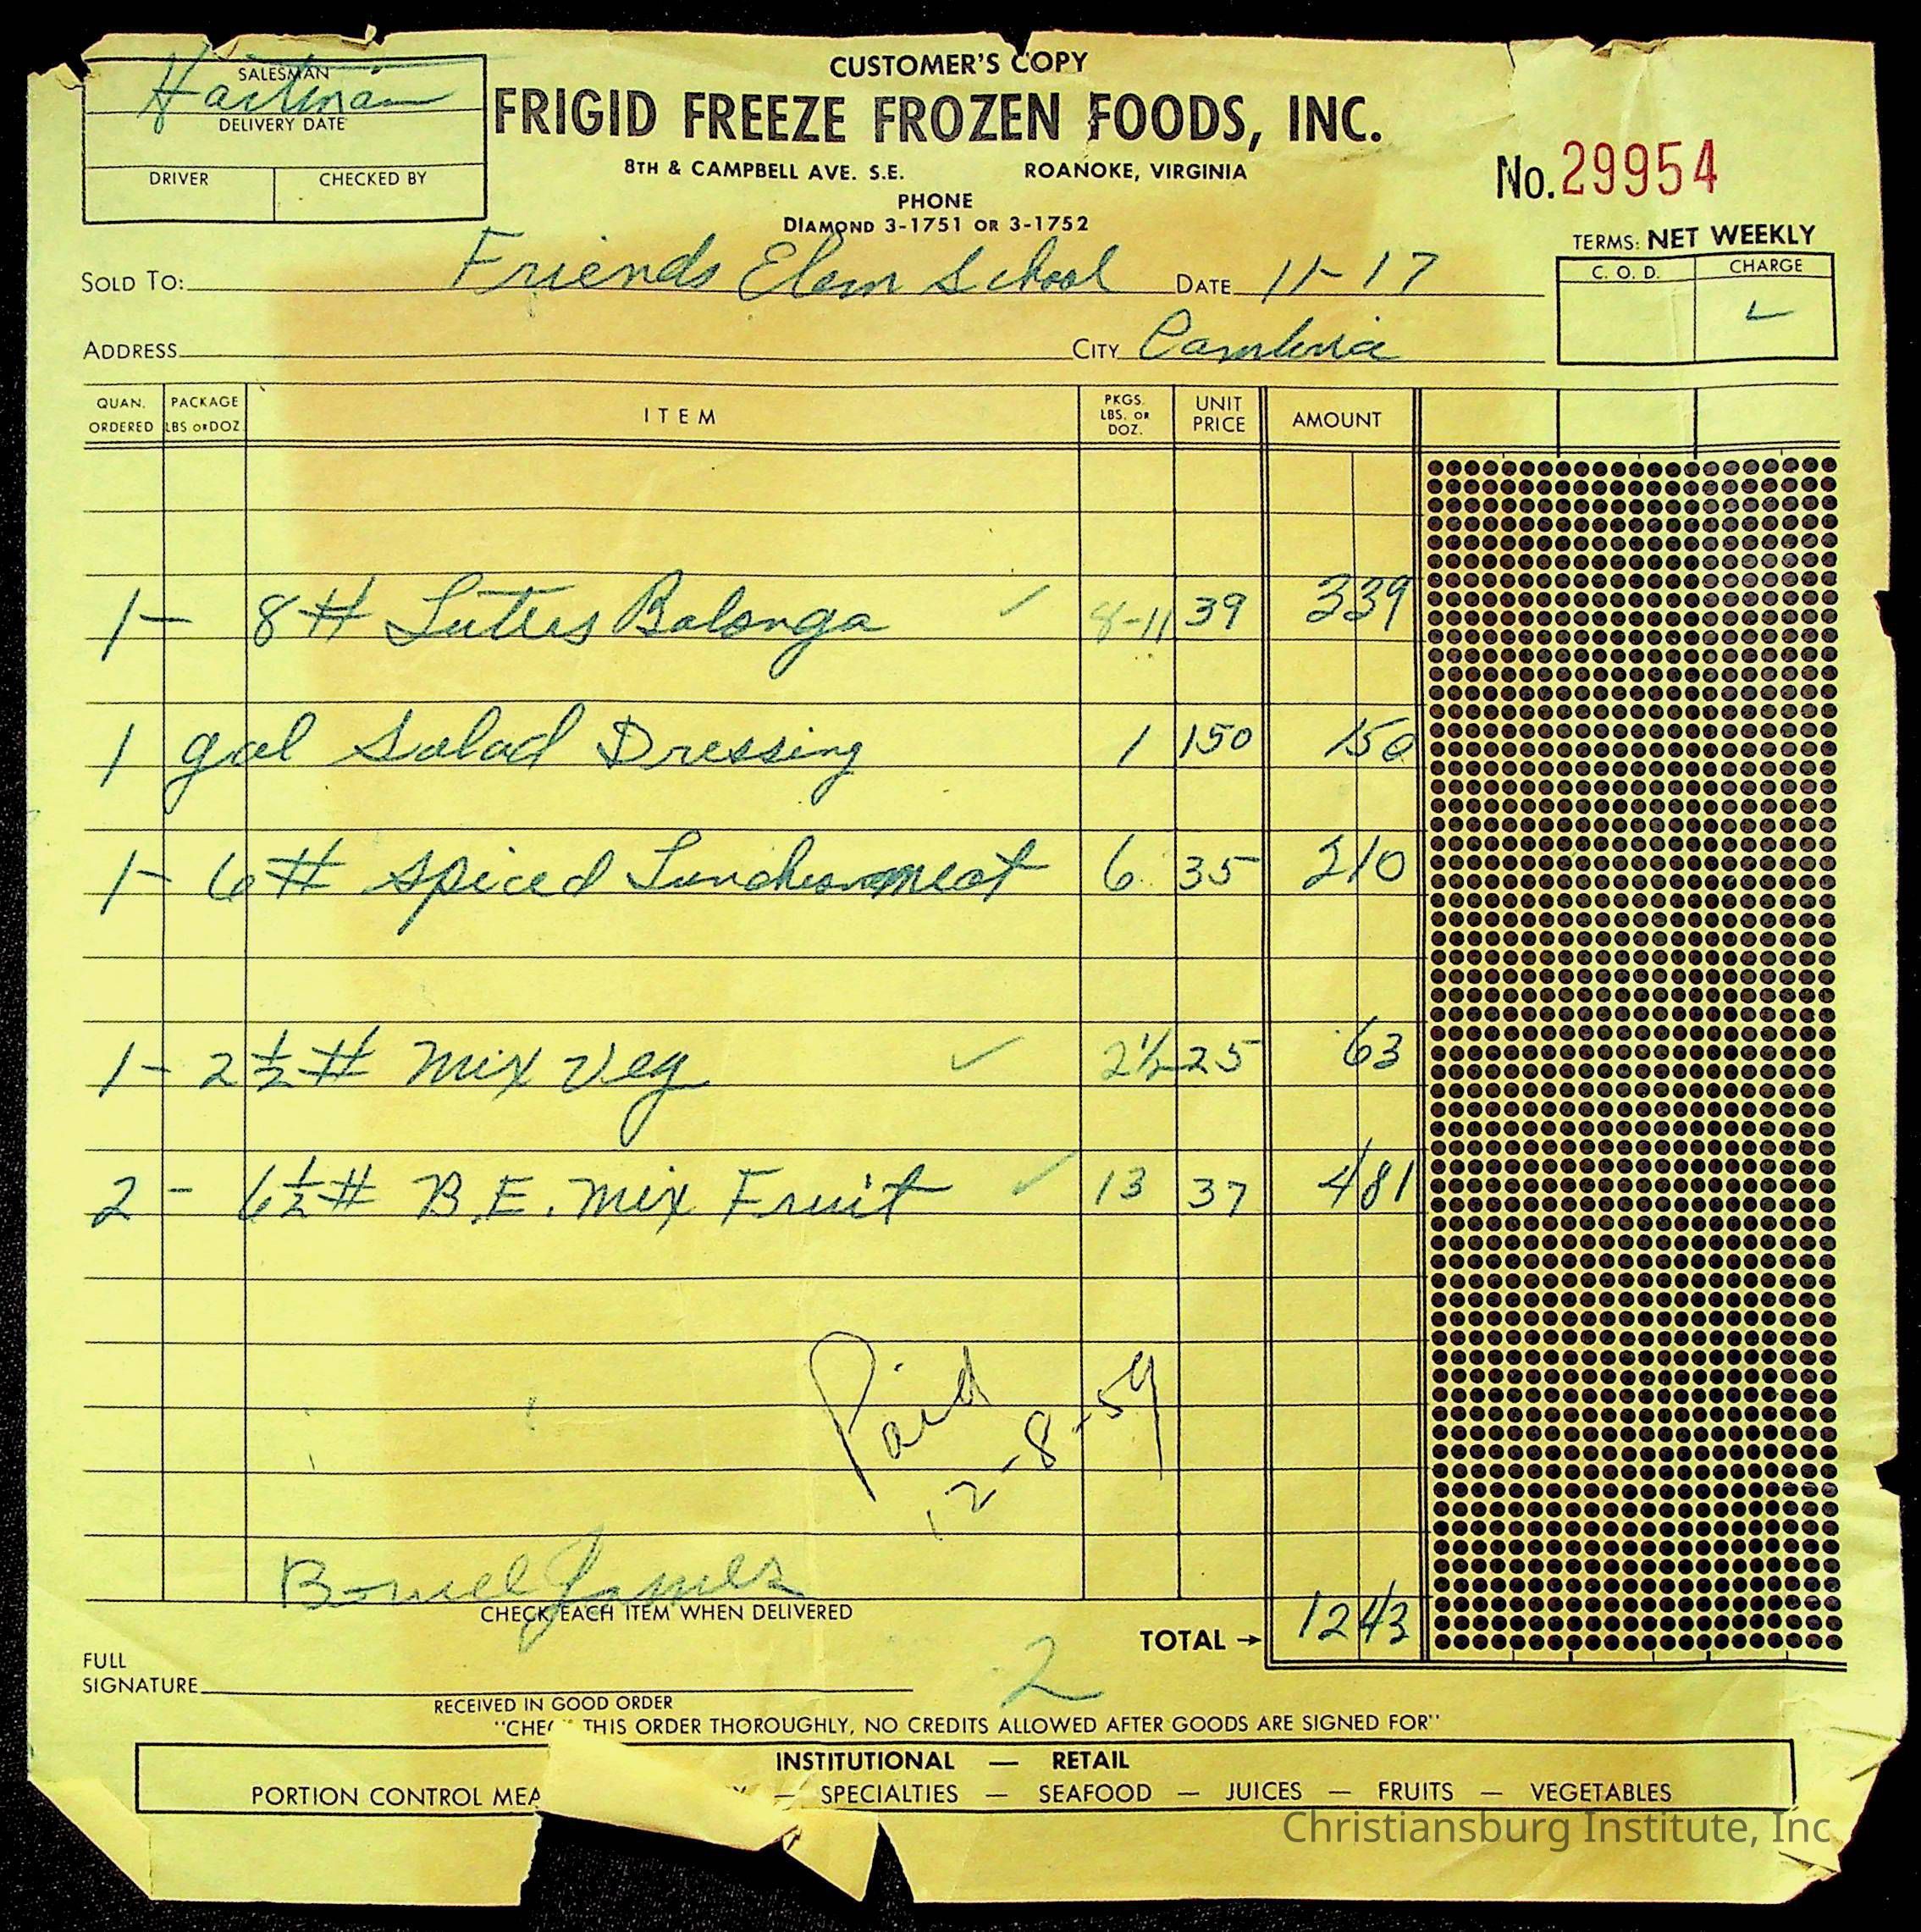 CUSTOMER'S COPY
SALESMAN
Hartman
DELIVERY DATE
DRIVER CHECKED BY
FRIGID FREEZE FROZEN FOODS, INC.
8TH & CAMPBELL AVE. S.E. ROANOKE, VIRGINIA
PHONE
DIAMOND 3-1751 OR 3-1752
No. 29954
TERMS: NET WEEKLY
C. O. D. CHARGE
SOLD TO: Friends Elem School DATE 11-17
ADDRESS CITY Cambria
QUAN. ORDERED PACKAGE LBS OR DOZ. ITEM PKGS. LBS. OR DOZ. UNIT PRICE AMOUNT
1- 8# Luters Balonga ✓ 8-11 39 339
1 gal Salad Dressing 1 150 150
1- 6# Spiced Luncheonmeat 6 35 210
1- 2½# Mix Veg ✓ 2½ 25 63
2 - 6½# B.E. Mix Fruit ✓ 13 37 481
Paid
12-8-59
James
CHECK EACH ITEM WHEN DELIVERED
TOTAL → 1243
2
FULL
SIGNATURE
RECEIVED IN GOOD ORDER
"CHE THIS ORDER THOROUGHLY, NO CREDITS ALLOWED AFTER GOODS ARE SIGNED FOR"
INSTITUTIONAL — RETAIL
PORTION CONTROL MEA — SPECIALTIES — SEAFOOD — JUICES — FRUITS — VEGETABLES
Christiansburg Institute, Inc